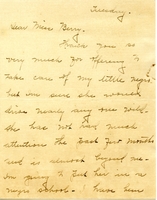 Tuesday.
Dear Miss Berry,
Thank you so
very much for offering to
take care of my little negro
but am sure she would
drive nearly any one wild.
She has not had much
attention the past few months
and is almost beyond me.
am going to put her in a
negro school. I have been